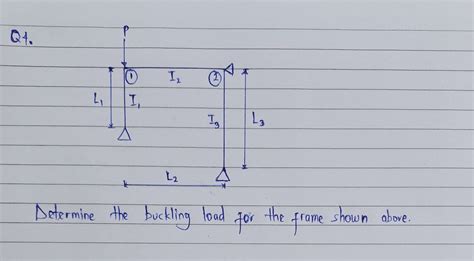 Q1.
P
① I₂ ②
L₁ I₁
I₃ L₃
L₂
Determine the buckling load for the frame shown above.